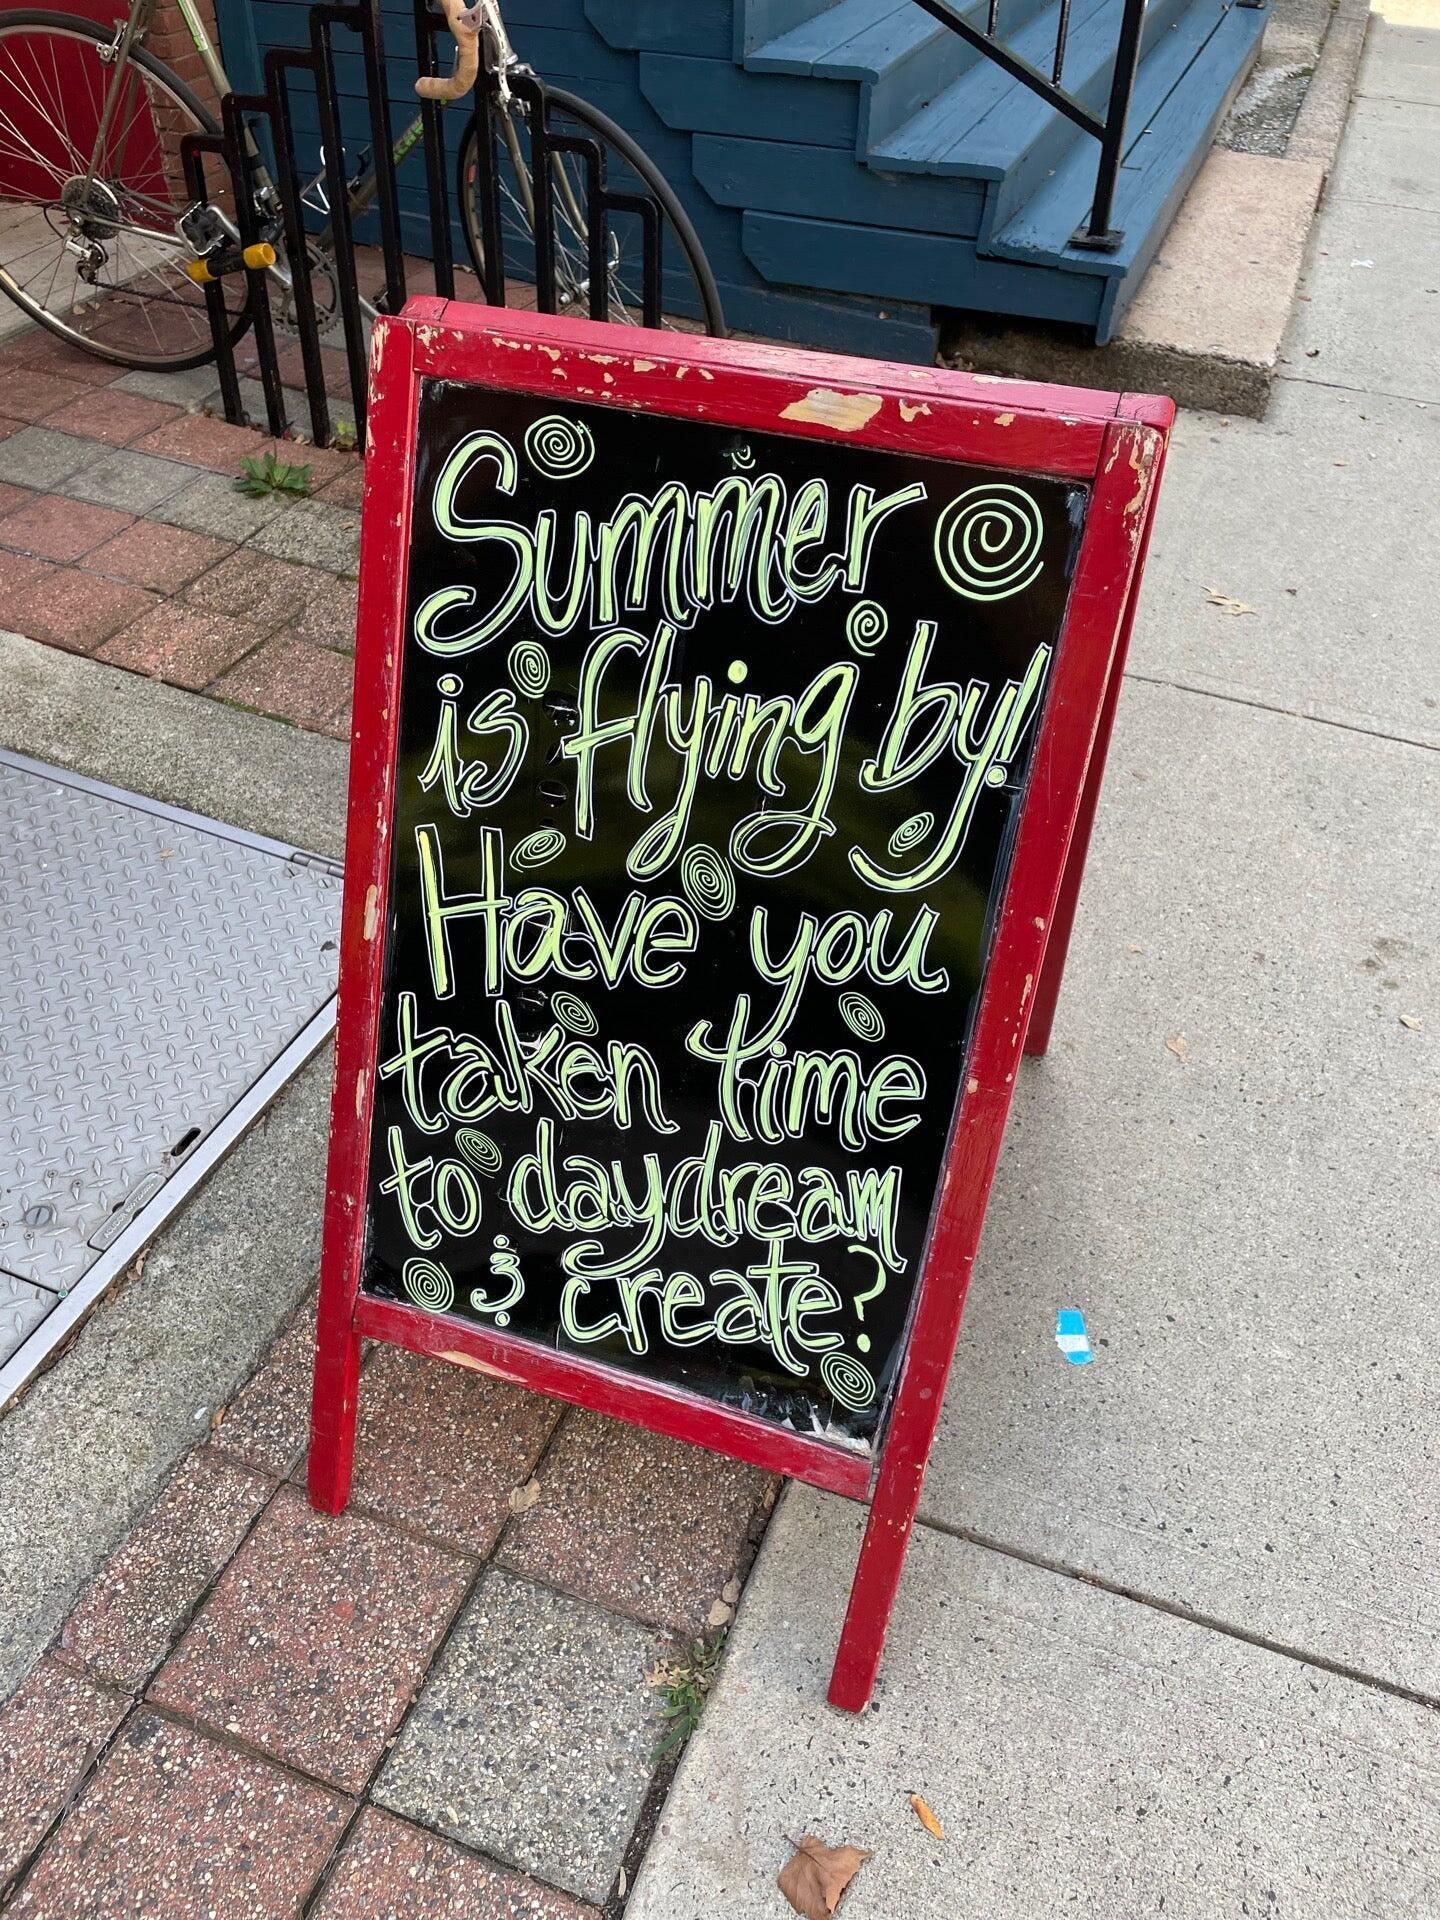 Summer
is flying by!
Have you
taken time
to daydream
& create?